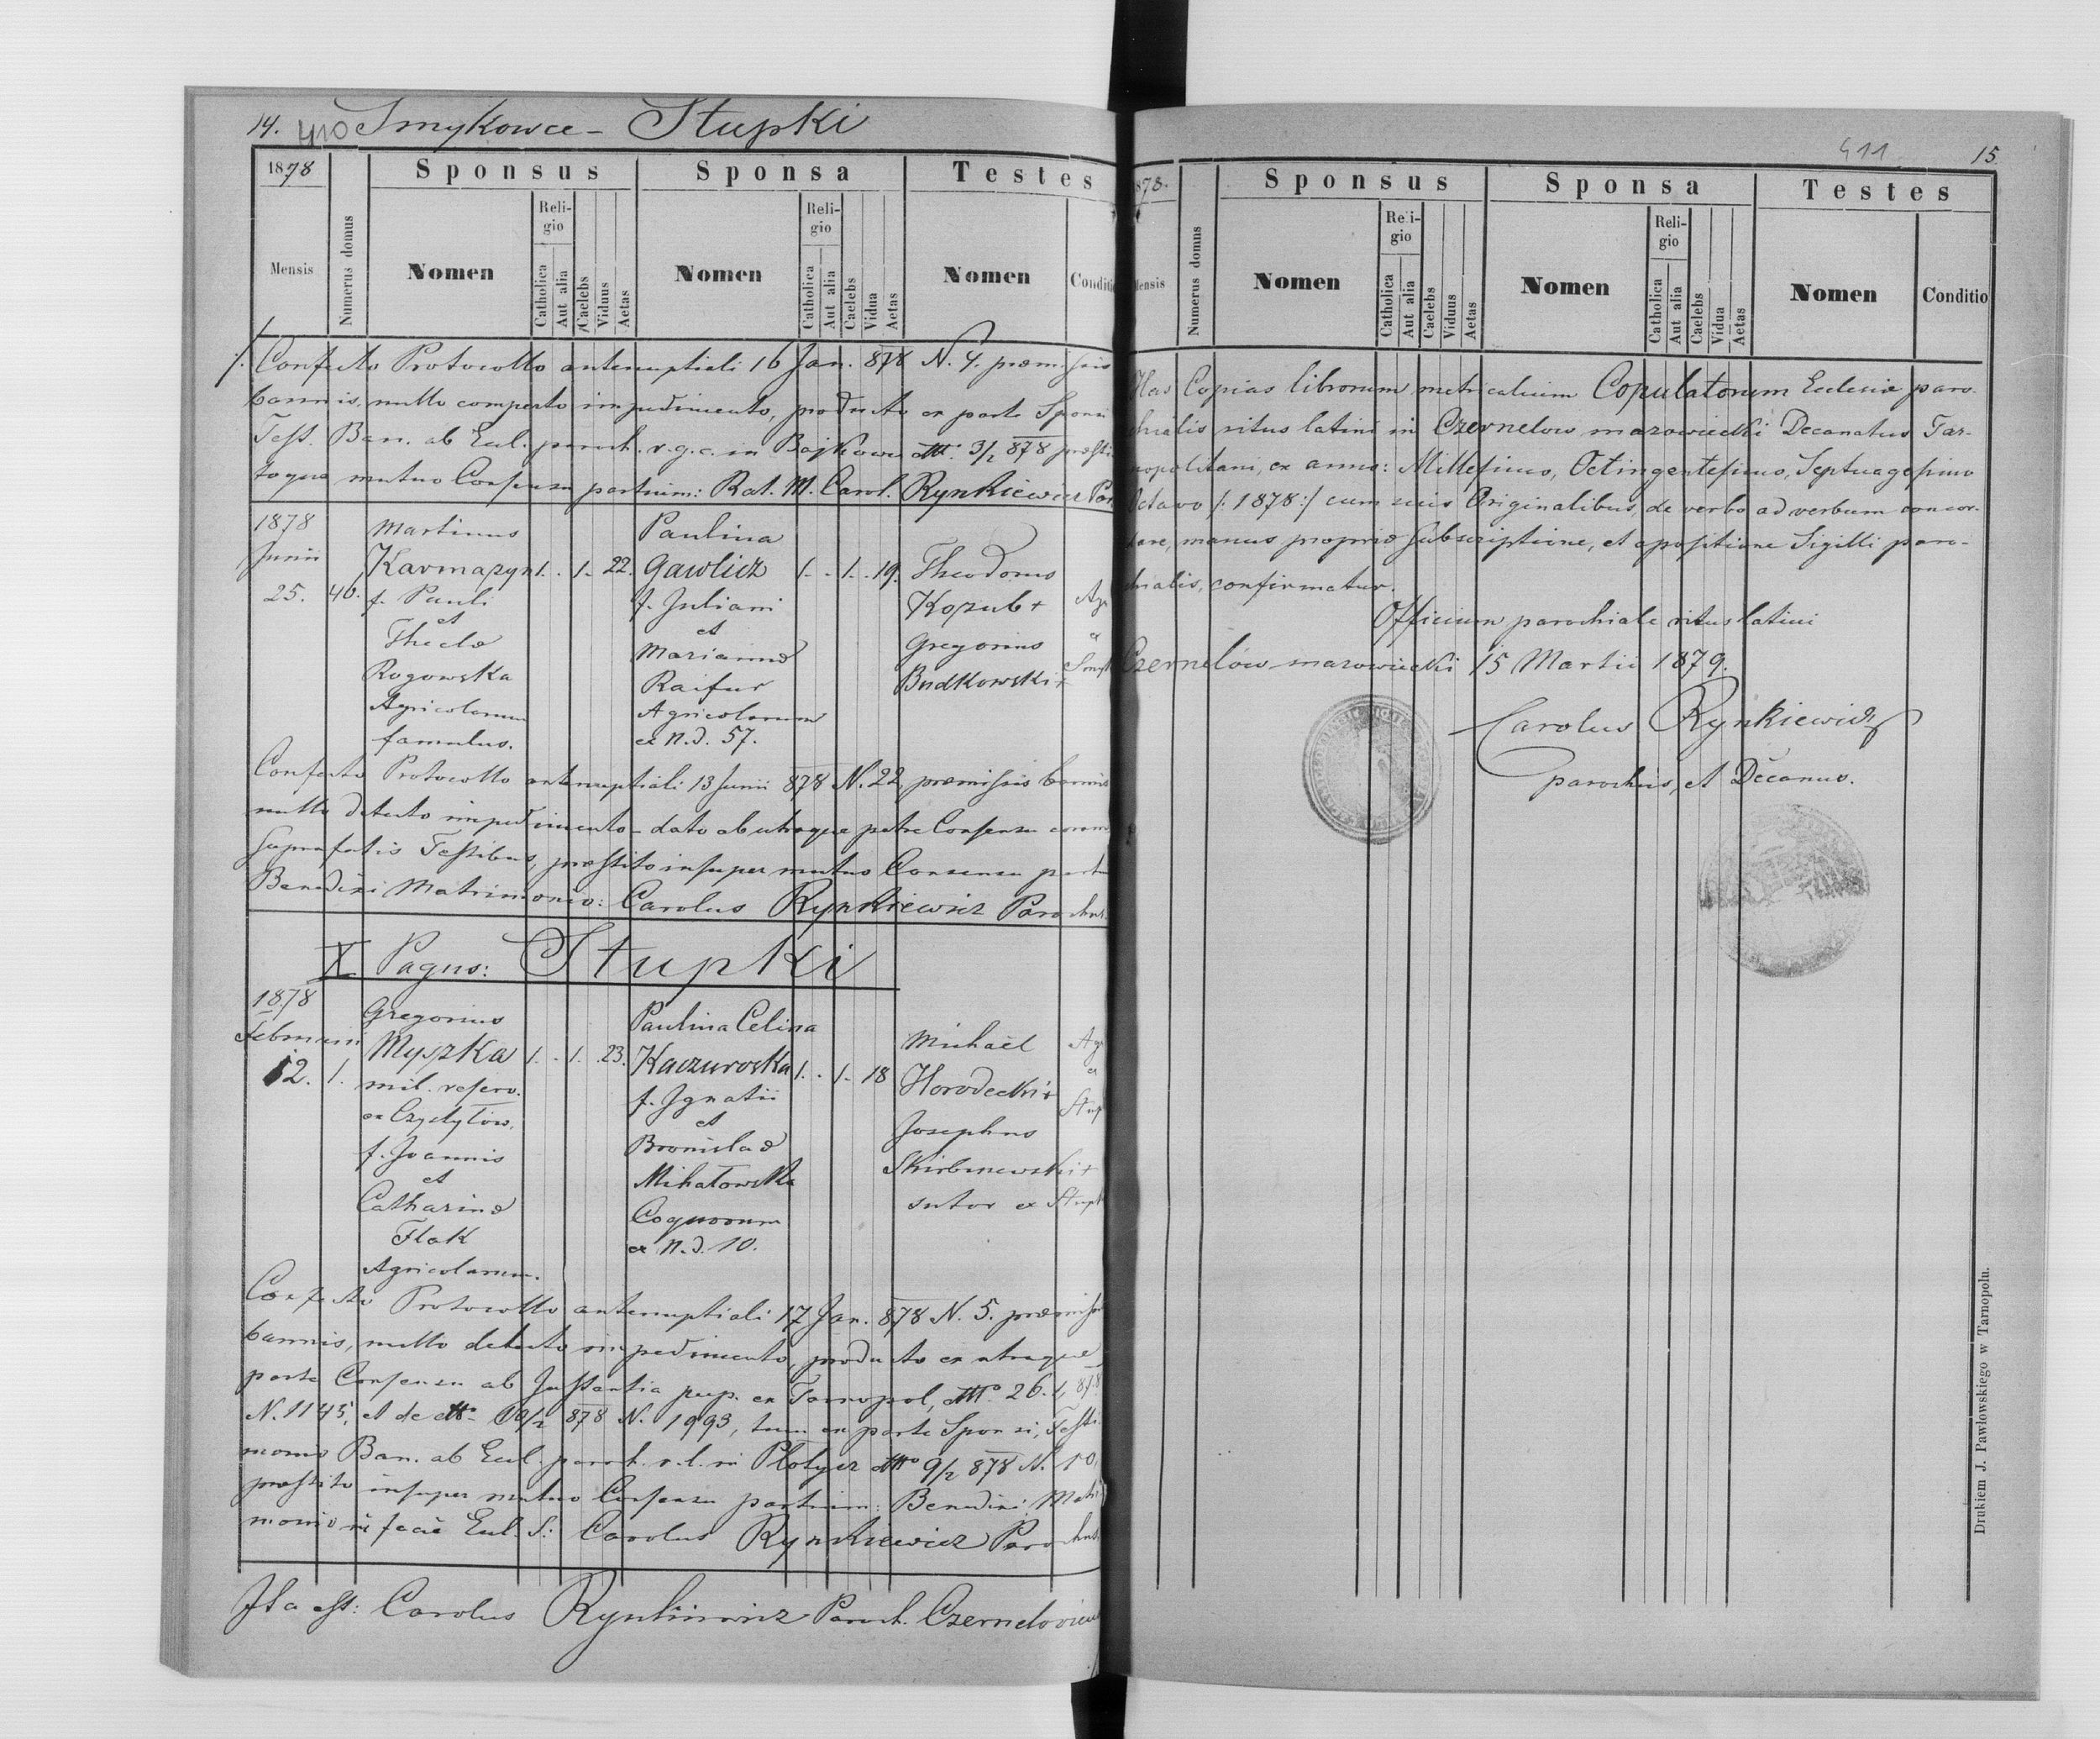 14. 410 Smykowce - Stupki
1878 Sponsus Sponsa Testes
Mensis Numerus domus Nomen Religio Catholica Aut alia Caelebs Viduus Aetas Nomen Religio Catholica Aut alia Caelebs Vidua Aetas Nomen Conditio
./. Confecto Protocollo antenuptiali 16 Jan. 878 N. 4. præmissis
bannis, nullo comperto impedimento, producto ex parte Sponsi
Test. Ban. ab Eccl. paroch. r.g.c. in Bajkowce 3/2 878 præsti-
toque mutuo Consensu partium: Rat. M. Carol. Rynkiewicz Par
1878 Martinus Paulina
Junii Karmazyn 1. . 1. 22. Gawlicz 1. . 1. 19. Theodorus
25. 46. f. Pauli f. Juliani Kozub +
et et Gregorius
Thecla Marianna Budkowski +
Rogowska Raifur
Agricolarum Agricolarum
famulus. ex N.d. 57.
Confecto Protocollo antenuptiali 13 Junii 878 N. 22, præmissis bannis
nullo detecto impedimento - dato ab utroque patre Consensu coram
suprafatis Testibus, præstito insuper mutuo Consensu partium
Benedixi Matrimonio: Carolus Rynkiewicz Parochus.
X Pagus: Stupki
1878 Gregorius Paulina Celina
Februarii Myszka 1. . 1. 23. Kaczuroska 1. . 1. 18 Michaël
12. 1. mil. reserv. f. Ignatii Horodecki +
ex Czystylow. et Josephus
f. Joannis Bronislaa Skirbinewski +
et Mihałowska sutor ex Stupk
Catharina Coquorum
Flak ex N.d. 10.
Agricolarum.
Confecto Protocollo antenuptiali 17 Jan. 878 N. 5. præmissis
bannis, nullo detecto impedimento, producto ex utraque
parte Consensu ab Instantia pup. ex Tarnopol, 26. 1, 878
N. 1145, et de 10/2 878 N. 1993, tum ex parte Sponsi, Testi-
monio Ban. ab Eccl. paroch. r.l. in Płotycz 9/2 878 N. 10,
præstito insuper mutuo Consensu partium: Benedixi Matri-
monio in facie Eccl. S: Carolus Rynkiewicz Parochus.
Ita est: Carolus Rynkiewicz Paroch.
411 15
1878. Sponsus Sponsa Testes
Mensis Numerus domus Nomen Religio Catholica Aut alia Caelebs Viduus Aetas Nomen Religio Catholica Aut alia Caelebs Vidua Aetas Nomen Conditio
Has Copias librorum metricalium Copulatorum Ecclesiæ paro-
chialis ritus latini in Czernelow mazowiecki Decanatus Tar-
nopolitani, ex anno: Millesimo, Octingentesimo, Septuagesimo
Octavo /: 1878 :/ cum suis Originalibus, de verbo ad verbum concor-
dare, manus propriæ subscriptione, et apositione Sigilli paro-
chialis, confirmatur.
Officium parochiale ritus latini
Czernelów mazowiecki 15 Martii 1879.
Carolus Rynkiewicz
parochus, et Decanus.
Drukiem J. Pawłowskiego w Tarnopolu.